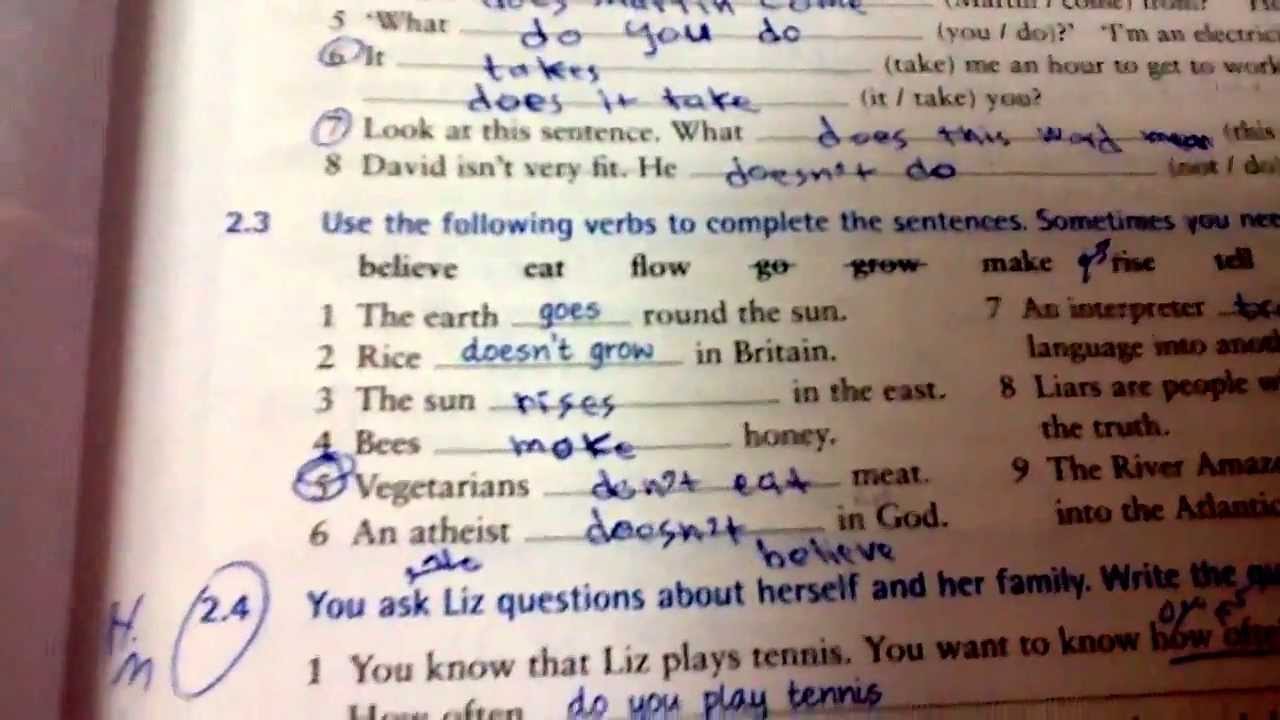 does martin come (Martin / come) from?
5 'What do you do (you / do)?' 'I'm an electrici
6 It takes (take) me an hour to get to work
does it take (it / take) you?
7 Look at this sentence. What does this word mean (this
8 David isn't very fit. He doesn't do (not / do
2.3 Use the following verbs to complete the sentences. Sometimes you nee
believe eat flow go grow make rise tell
1 The earth goes round the sun. 7 An interpreter
2 Rice doesn't grow in Britain. language into anoth
3 The sun rises in the east. 8 Liars are people w
4 Bees make honey. the truth.
5 Vegetarians don't eat meat. 9 The River Amaz
6 An atheist doesn't believe in God. into the Atlantic
H.
M
2.4 You ask Liz questions about herself and her family. Write the qu
1 You know that Liz plays tennis. You want to know how often
How often do you play tennis